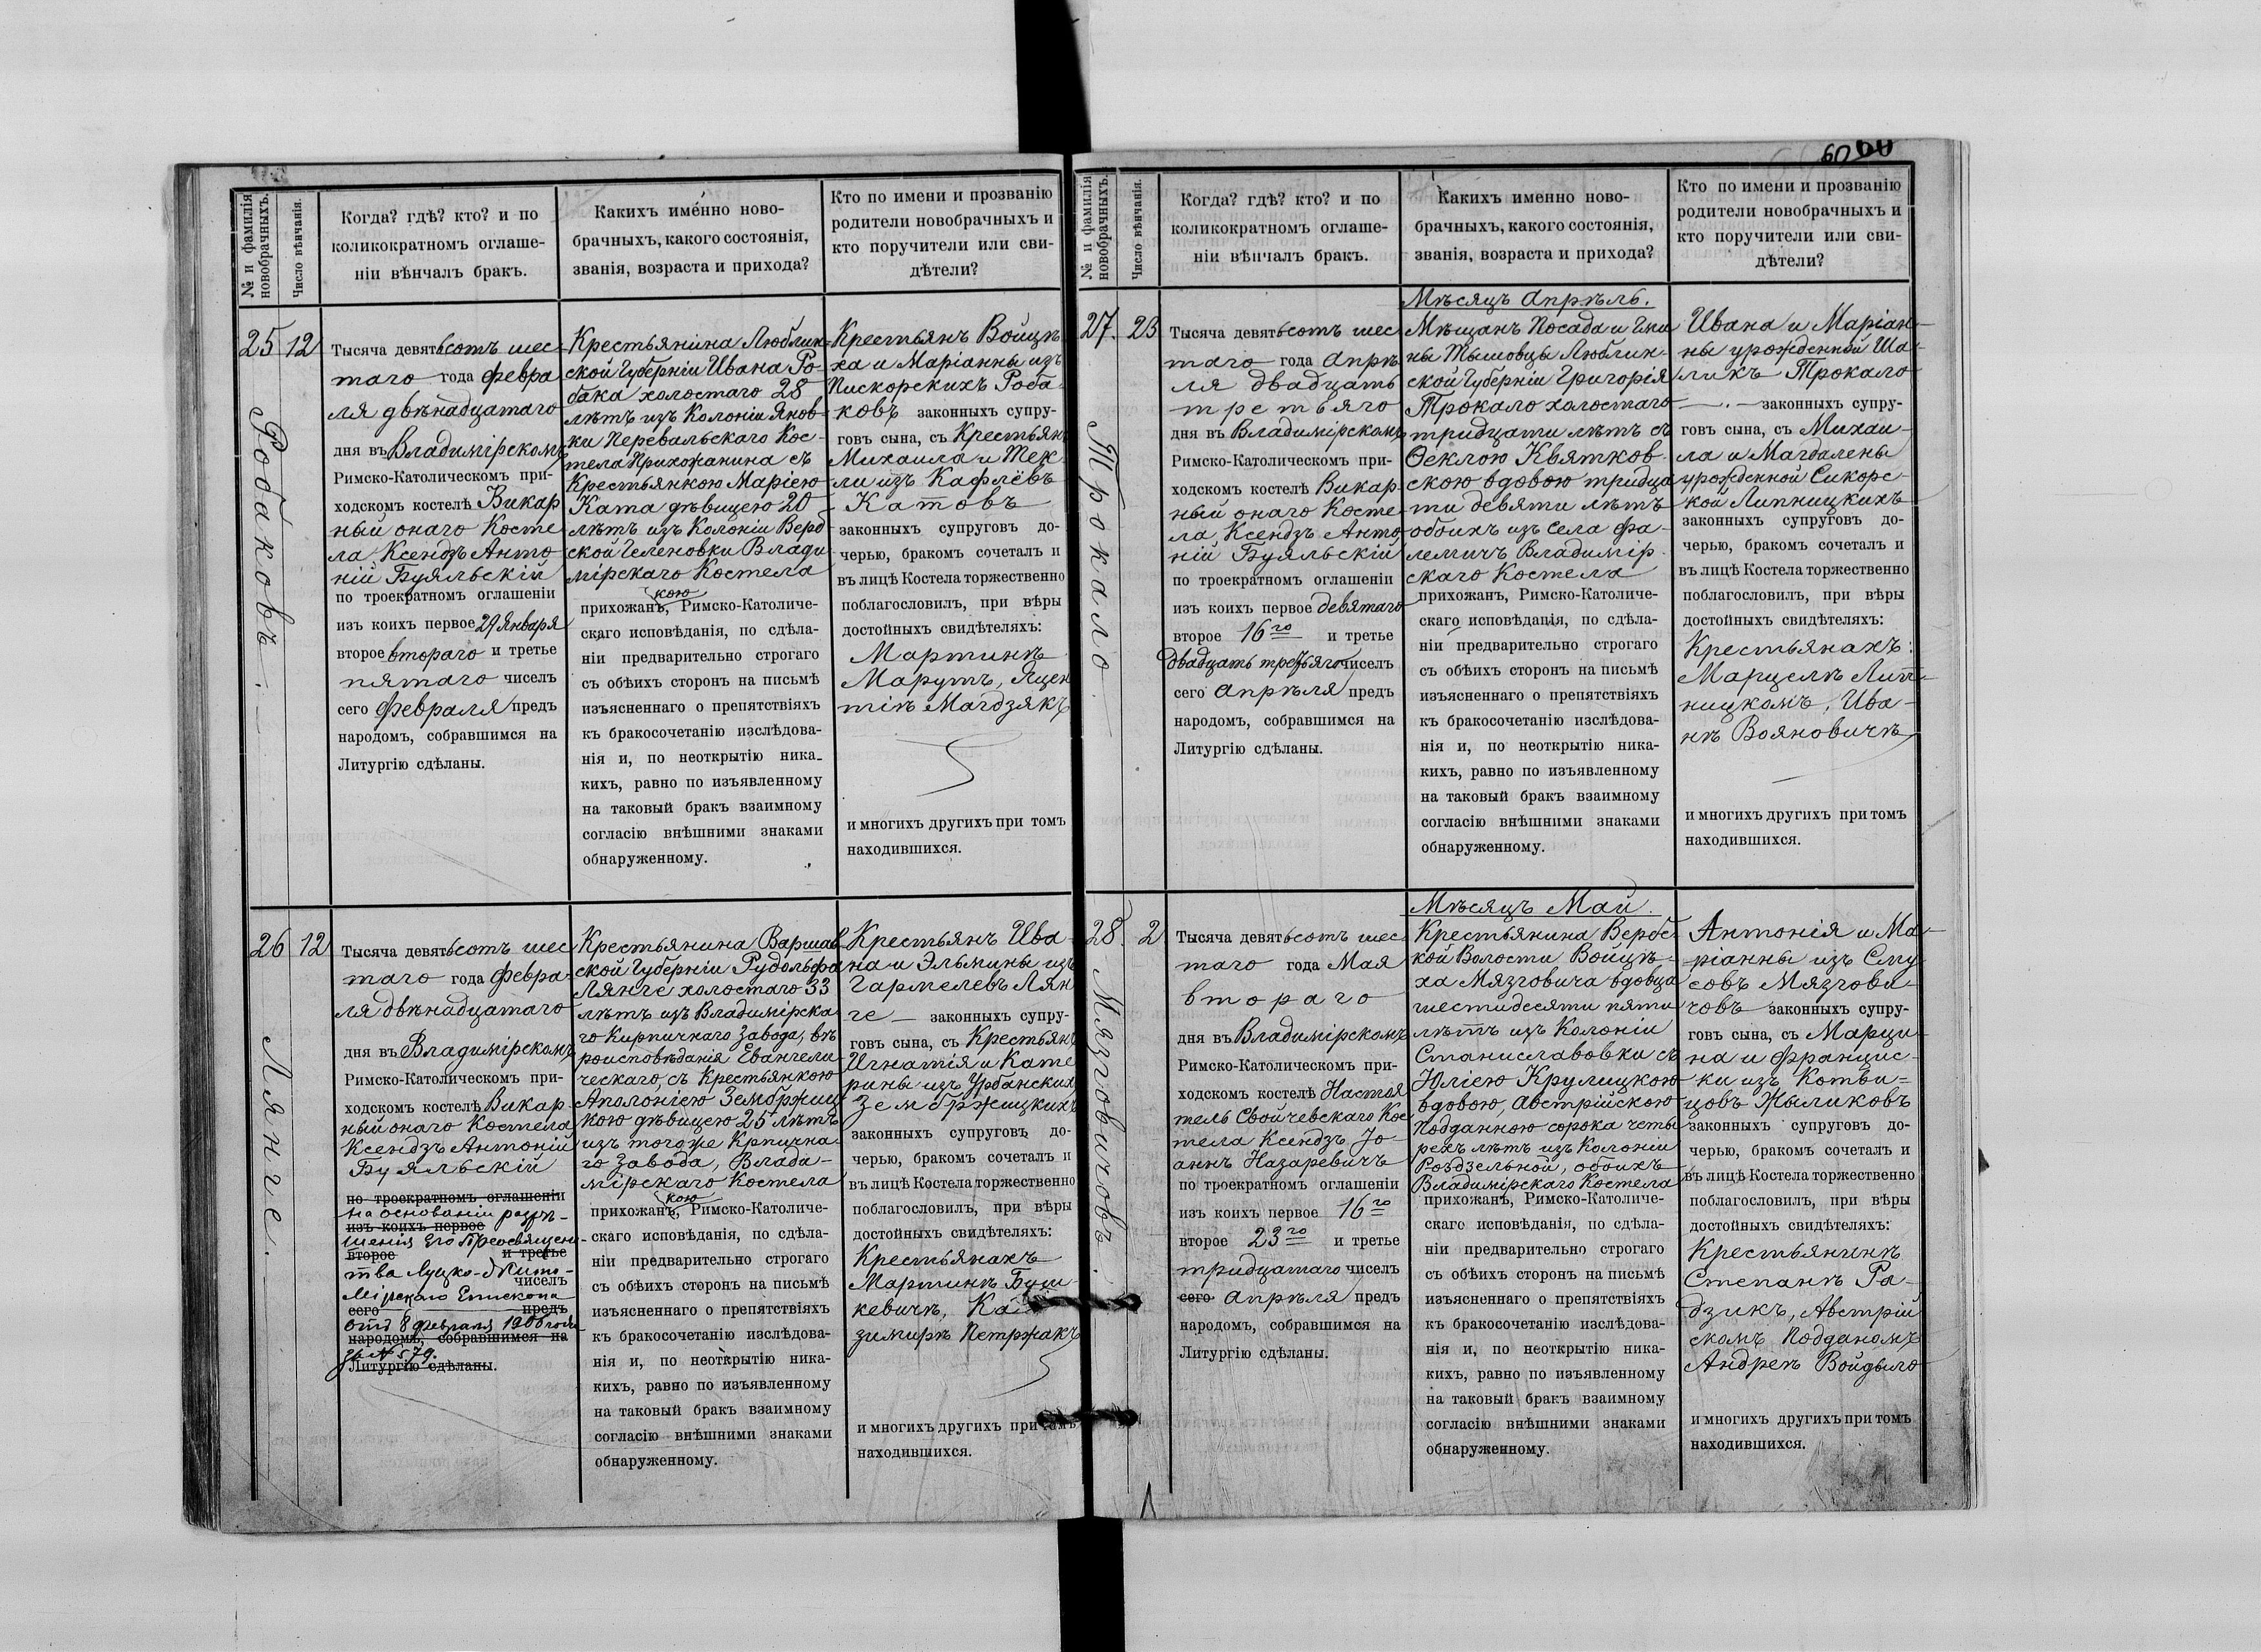 № и фамилія
новобрачныхъ.
Число вѣнчанія.
Когда? гдѣ? кто? и по
коликократномъ оглаше-
ніи вѣнчалъ бракъ.
Какихъ именно ново-
брачныхъ, какого состоянія,
званія, возраста и прихода?
Кто по имени и прозванію
родители новобрачныхъ и
кто поручители или сви-
дѣтели?
25
12
Робаковъ.
Тысяча девятьсотъ шес
таго года февра
ля двѣнадцатаго
дня въ Владимірскомъ
Римско-Католическомъ при-
ходскомъ костелѣ Викар
ный онаго Косте
ла Ксендзъ Анто
ній Буяльскій
по троекратномъ оглашеніи
изъ коихъ первое 29 Января
второе втораго и третье
пятаго чиселъ
сего февраля предъ
народомъ, собравшимся на
Литургію сдѣланы.
Крестьянина Люблин-
ской Губерніи Ивана Ро-
бака холостаго 28
лѣтъ изъ Колоніи Янов-
ки Перевальскаго Кос-
тела Прихожанина съ
Крестьянкою Маріею
Ката дѣвицею 20
лѣтъ изъ Колоніи Верб
ской Геленовки Влади
мірскаго Костела
кою
прихожанъ, Римско-Католиче-
скаго исповѣданія, по сдѣла-
ніи предварительно строгаго
съ обѣихъ сторонъ на письмѣ
изъясненнаго о препятствіяхъ
къ бракосочетанію изслѣдова-
нія и, по неоткрытію ника-
кихъ, равно по изъявленному
на таковый бракъ взаимному
согласію внѣшними знаками
обнаруженному.
Крестьянъ Войцѣ
ха и Маріанны изъ
Пискорскихъ Роба-
ковъ законныхъ супру-
говъ сына, съ Крестьянъ
Михаила и Тек-
ли изъ Кафлёвъ
Катовъ
законныхъ супруговъ до-
черью, бракомъ сочеталъ и
въ лицѣ Костела торжественно
поблагословилъ, при вѣры
достойныхъ свидѣтеляхъ:
Мартинѣ
Марутъ, Яцен
тіѣ Магдзякъ
и многихъ другихъ при томъ
находившихся.
26
12
Лянге.
Тысяча девятьсотъ шес
таго года февра
ля двѣнадцатаго
дня въ Владимірскомъ
Римско-Католическомъ при-
ходскомъ костелѣ Викар
ный онаго Костела
Ксендзъ Антоній
Буяльскій
по троекратномъ оглашеніи
на основаніи разрѣ-
изъ коихъ первое
шенія Его Преосвящен
второе и третье
тва Луцко-Жито-
чиселъ
мірскаго Епископа
сего предъ
отъ 8 февраля 1906 года
народомъ, собравшимся на
за № 579.
Литургію сдѣланы.
Крестьянина Варшав
ской Губерніи Рудольфа
Лянге холостаго 33
лѣтъ изъ Владимірска
го Кирпичнаго Завода, вѣ
роисповѣданія Евангели-
ческаго, съ Крестьянкою
Аполоніею Земоржиц
кою дѣвицею 25 лѣтъ
изъ тогоже Крпична-
го Завода, Влади-
мірскаго Костела
кою
прихожанъ, Римско-Католиче-
скаго исповѣданія, по сдѣла-
ніи предварительно строгаго
съ обѣихъ сторонъ на письмѣ
изъясненнаго о препятствіяхъ
къ бракосочетанію изслѣдова-
нія и, по неоткрытію ника-
кихъ, равно по изъявленному
на таковый бракъ взаимному
согласію внѣшними знаками
обнаруженному.
Крестьянъ Ива
на и Эльмины изъ
Гармелевъ Лян
ге — законныхъ супру-
говъ сына, съ Крестьян
Игнатія и Кате
рины изъ Урбанскихъ
Земоржицкихъ
законныхъ супруговъ до-
черью, бракомъ сочеталъ и
въ лицѣ Костела торжественно
поблагословилъ, при вѣры
достойныхъ свидѣтеляхъ:
Крестьянахъ
Мартинѣ Буш-
кевичѣ, Ка
зимирѣ Петржакъ
и многихъ другихъ при томъ
находившихся.
60 60
№ и фамилія
новобрачныхъ.
Число вѣнчанія.
Когда? гдѣ? кто? и по
коликократномъ оглаше-
ніи вѣнчалъ бракъ.
Какихъ именно ново-
брачныхъ, какого состоянія,
званія, возраста и прихода?
Кто по имени и прозванію
родители новобрачныхъ и
кто поручители или сви-
дѣтели?
27.
23
Трокало.
Тысяча девятьсотъ шес
таго года Апрѣ
ля двадцать
третьяго
дня въ Владимірскомъ
Римско-Католическомъ при-
ходскомъ костелѣ Викар
ный онаго Косте
ла, Ксендзъ Анто
ній Буяльскій
по троекратномъ оглашеніи
изъ коихъ первое девятаго
второе 16го и третье
двадцать третьяго чиселъ
сего Апрѣля предъ
народомъ, собравшимся на
Литургію сдѣланы.
Мѣсяцъ Апрѣль.
Мѣщанъ Посада и Гми
ны Тышовцы Люблин-
ской Губерніи Григорія
Трокало холостаго
тридцати лѣтъ съ
Ѳеклою Квятков-
скою вдовою тридца
ти девяти лѣтъ
обоихъ изъ села Фа-
лемичъ Владимір-
скаго Костела
прихожан, Римско-Католиче-
скаго исповѣданія, по сдѣла-
ніи предварительно строгаго
съ обѣихъ сторонъ на письмѣ
изъясненнаго о препятствіяхъ
къ бракосочетанію изслѣдова-
нія и, по неоткрытію ника-
кихъ, равно по изъявленному
на таковый бракъ взаимному
согласію внѣшними знаками
обнаруженному.
Ивана и Маріан-
ны урожденной Ша-
ликъ Трокало
законныхъ супру-
говъ сына, съ Михаи-
ла и Магдалены
урожденной Сикорс-
кой Липницкихъ
законныхъ супруговъ до-
черью, бракомъ сочеталъ и
въ лицѣ Костела торжественно
поблагословилъ, при вѣры
достойныхъ свидѣтеляхъ:
Крестьянахъ:
Марцелѣ Лип-
ницкомъ, Ива-
нѣ Вояновичѣ
и многихъ другихъ при томъ
находившихся.
28.
2
Мязговичовъ.
Тысяча девятьсотъ шес
таго года Мая
втораго
дня въ Владимірскомъ
Римско-Католическомъ при-
ходскомъ костелѣ Настоя
тель Свойчевскаго Кос
тела Ксендзъ Іо-
аннъ Назаревичъ
по троекратномъ оглашеніи
изъ коихъ первое 16го
второе 23го и третье
тридцатаго чиселъ
сего Апрѣля предъ
народомъ, собравшимся на
Литургію сдѣланы.
Мѣсяцъ Май.
Крестьянина Вербс-
кой Волости Войцѣ-
ха Мязговича вдовца
шестидесяти пяти
лѣтъ изъ Колоніи
Станиславовки съ
Юліею Крулицкою
вдовою, Австрійскою
Подданною сорока четы
рехъ лѣтъ изъ Колоніи
Роздзельной, обоихъ
Владимірскаго Костела
прихожан, Римско-Католиче-
скаго исповѣданія, по сдѣла-
ніи предварительно строгаго
съ обѣихъ сторонъ на письмѣ
изъясненнаго о препятствіяхъ
къ бракосочетанію изслѣдова-
нія и, по неоткрытію ника-
кихъ, равно по изъявленному
на таковый бракъ взаимному
согласію внѣшними знаками
обнаруженному.
Антонія и Ма-
ріанны изъ Сму
совъ Мязгови-
човъ законныхъ супру-
говъ сына, съ Марци-
на и Францис-
ки изъ Котви-
цовъ Жыликовъ
законныхъ супруговъ до-
черью, бракомъ сочеталъ и
въ лицѣ Костела торжественно
поблагословилъ, при вѣры
достойныхъ свидѣтеляхъ:
Крестьянинѣ
Степанѣ Ра-
дзикъ, Австрій
скомъ Подданомъ
Андреѣ Войдыло
и многихъ другихъ при томъ
находившихся.